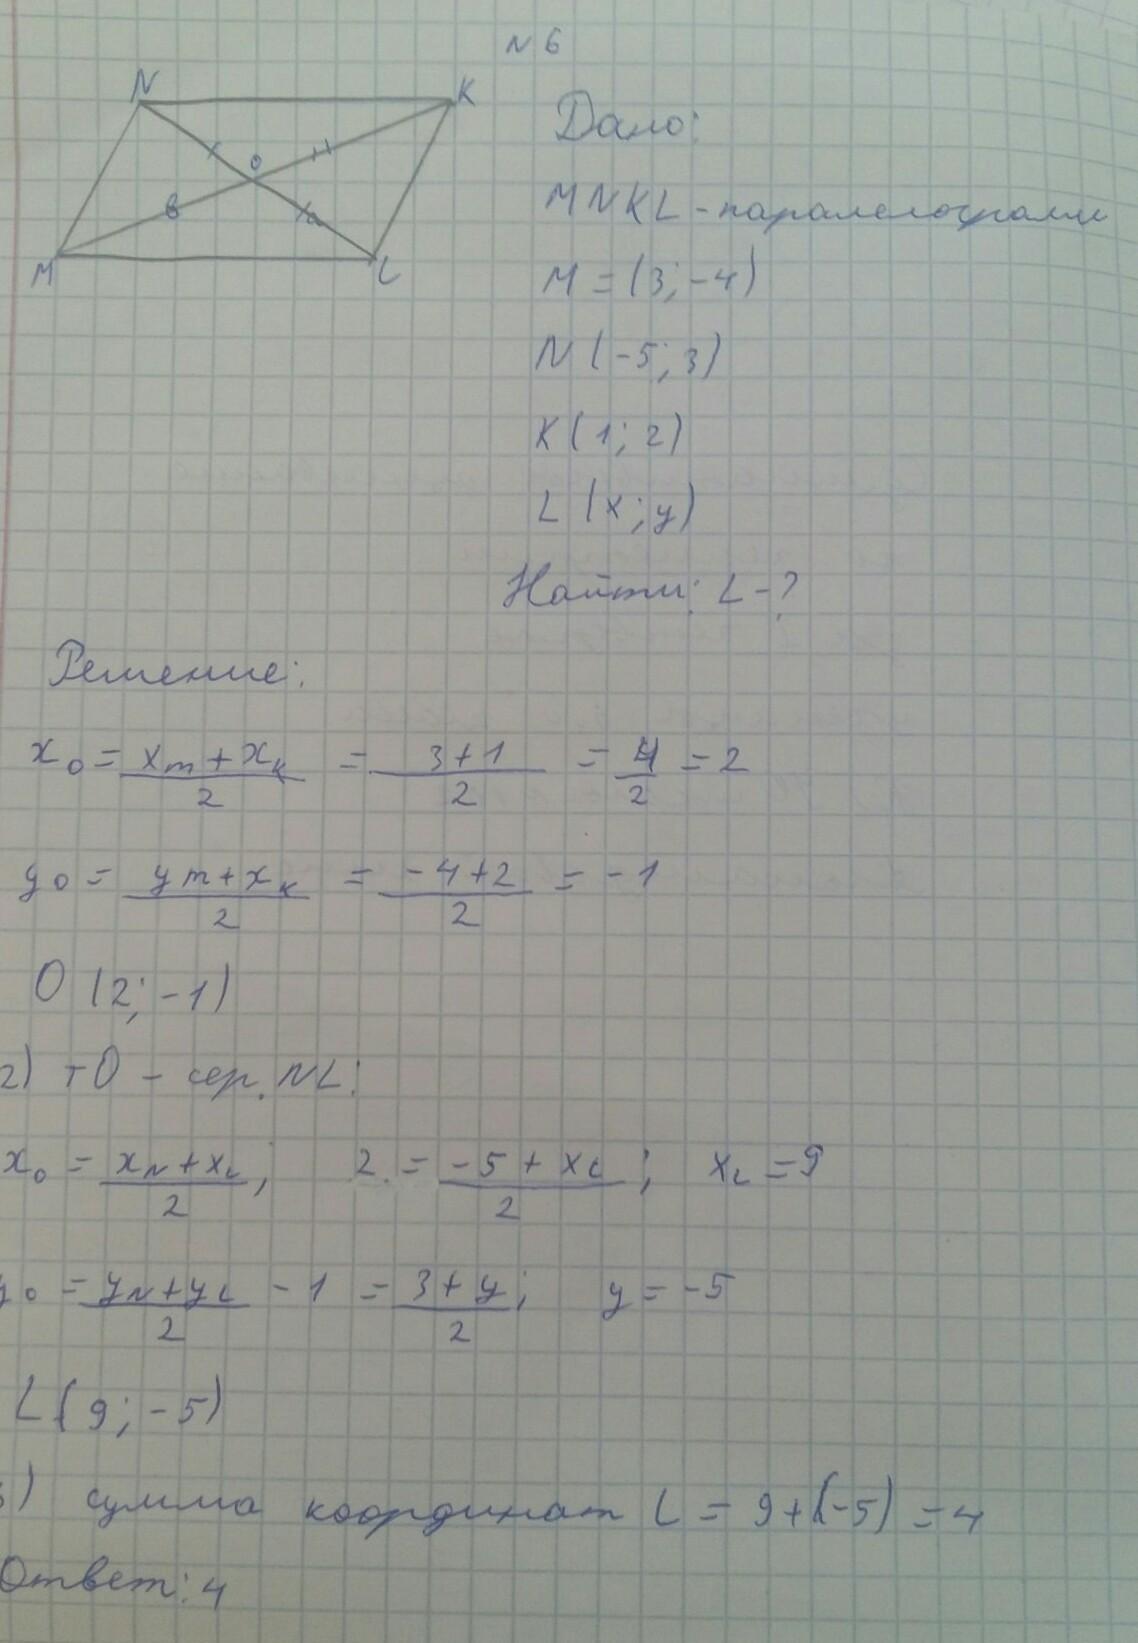 N 6
N
K
O
в
a
M
L
Дано:
MNKL - паралелограмм
M = (3; -4)
N (-5; 3)
K (1; 2)
L (x; y)
Найти: L - ?
Решение:
x₀ = (xm + xк)/2 = (3 + 1)/2 = 4/2 = 2
y₀ = (ym + xк)/2 = (-4 + 2)/2 = -1
O (2; -1)
2) т O - сер. NL:
x₀ = (xN + xL)/2; 2 = (-5 + xL)/2; xL = 9
y₀ = (yN + yL)/2 -1 = (3 + y)/2; y = -5
L (9; -5)
3) сумма координат L = 9 + (-5) = 4
Ответ: 4